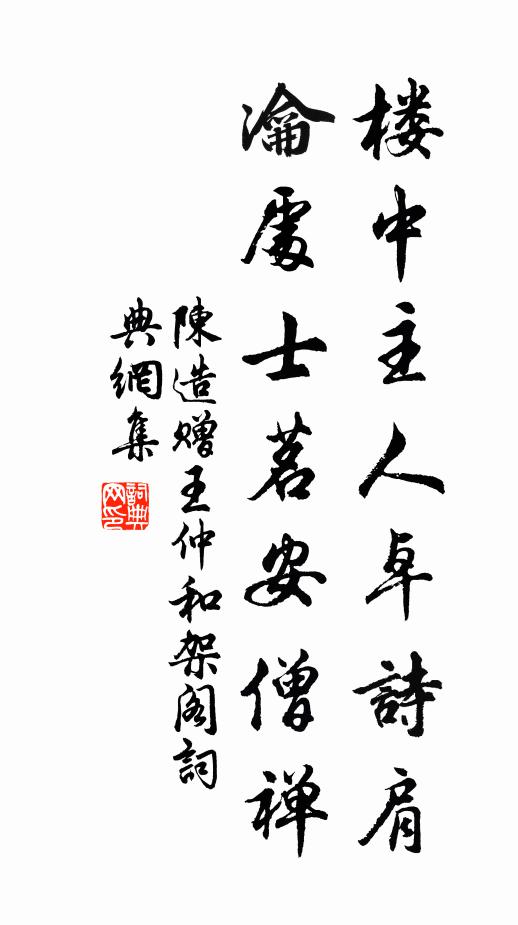 楼中主人卓詩肩
瀹處士茗安僧禅
陳造赠王仲和架阁詞
典網集
詞典
网印